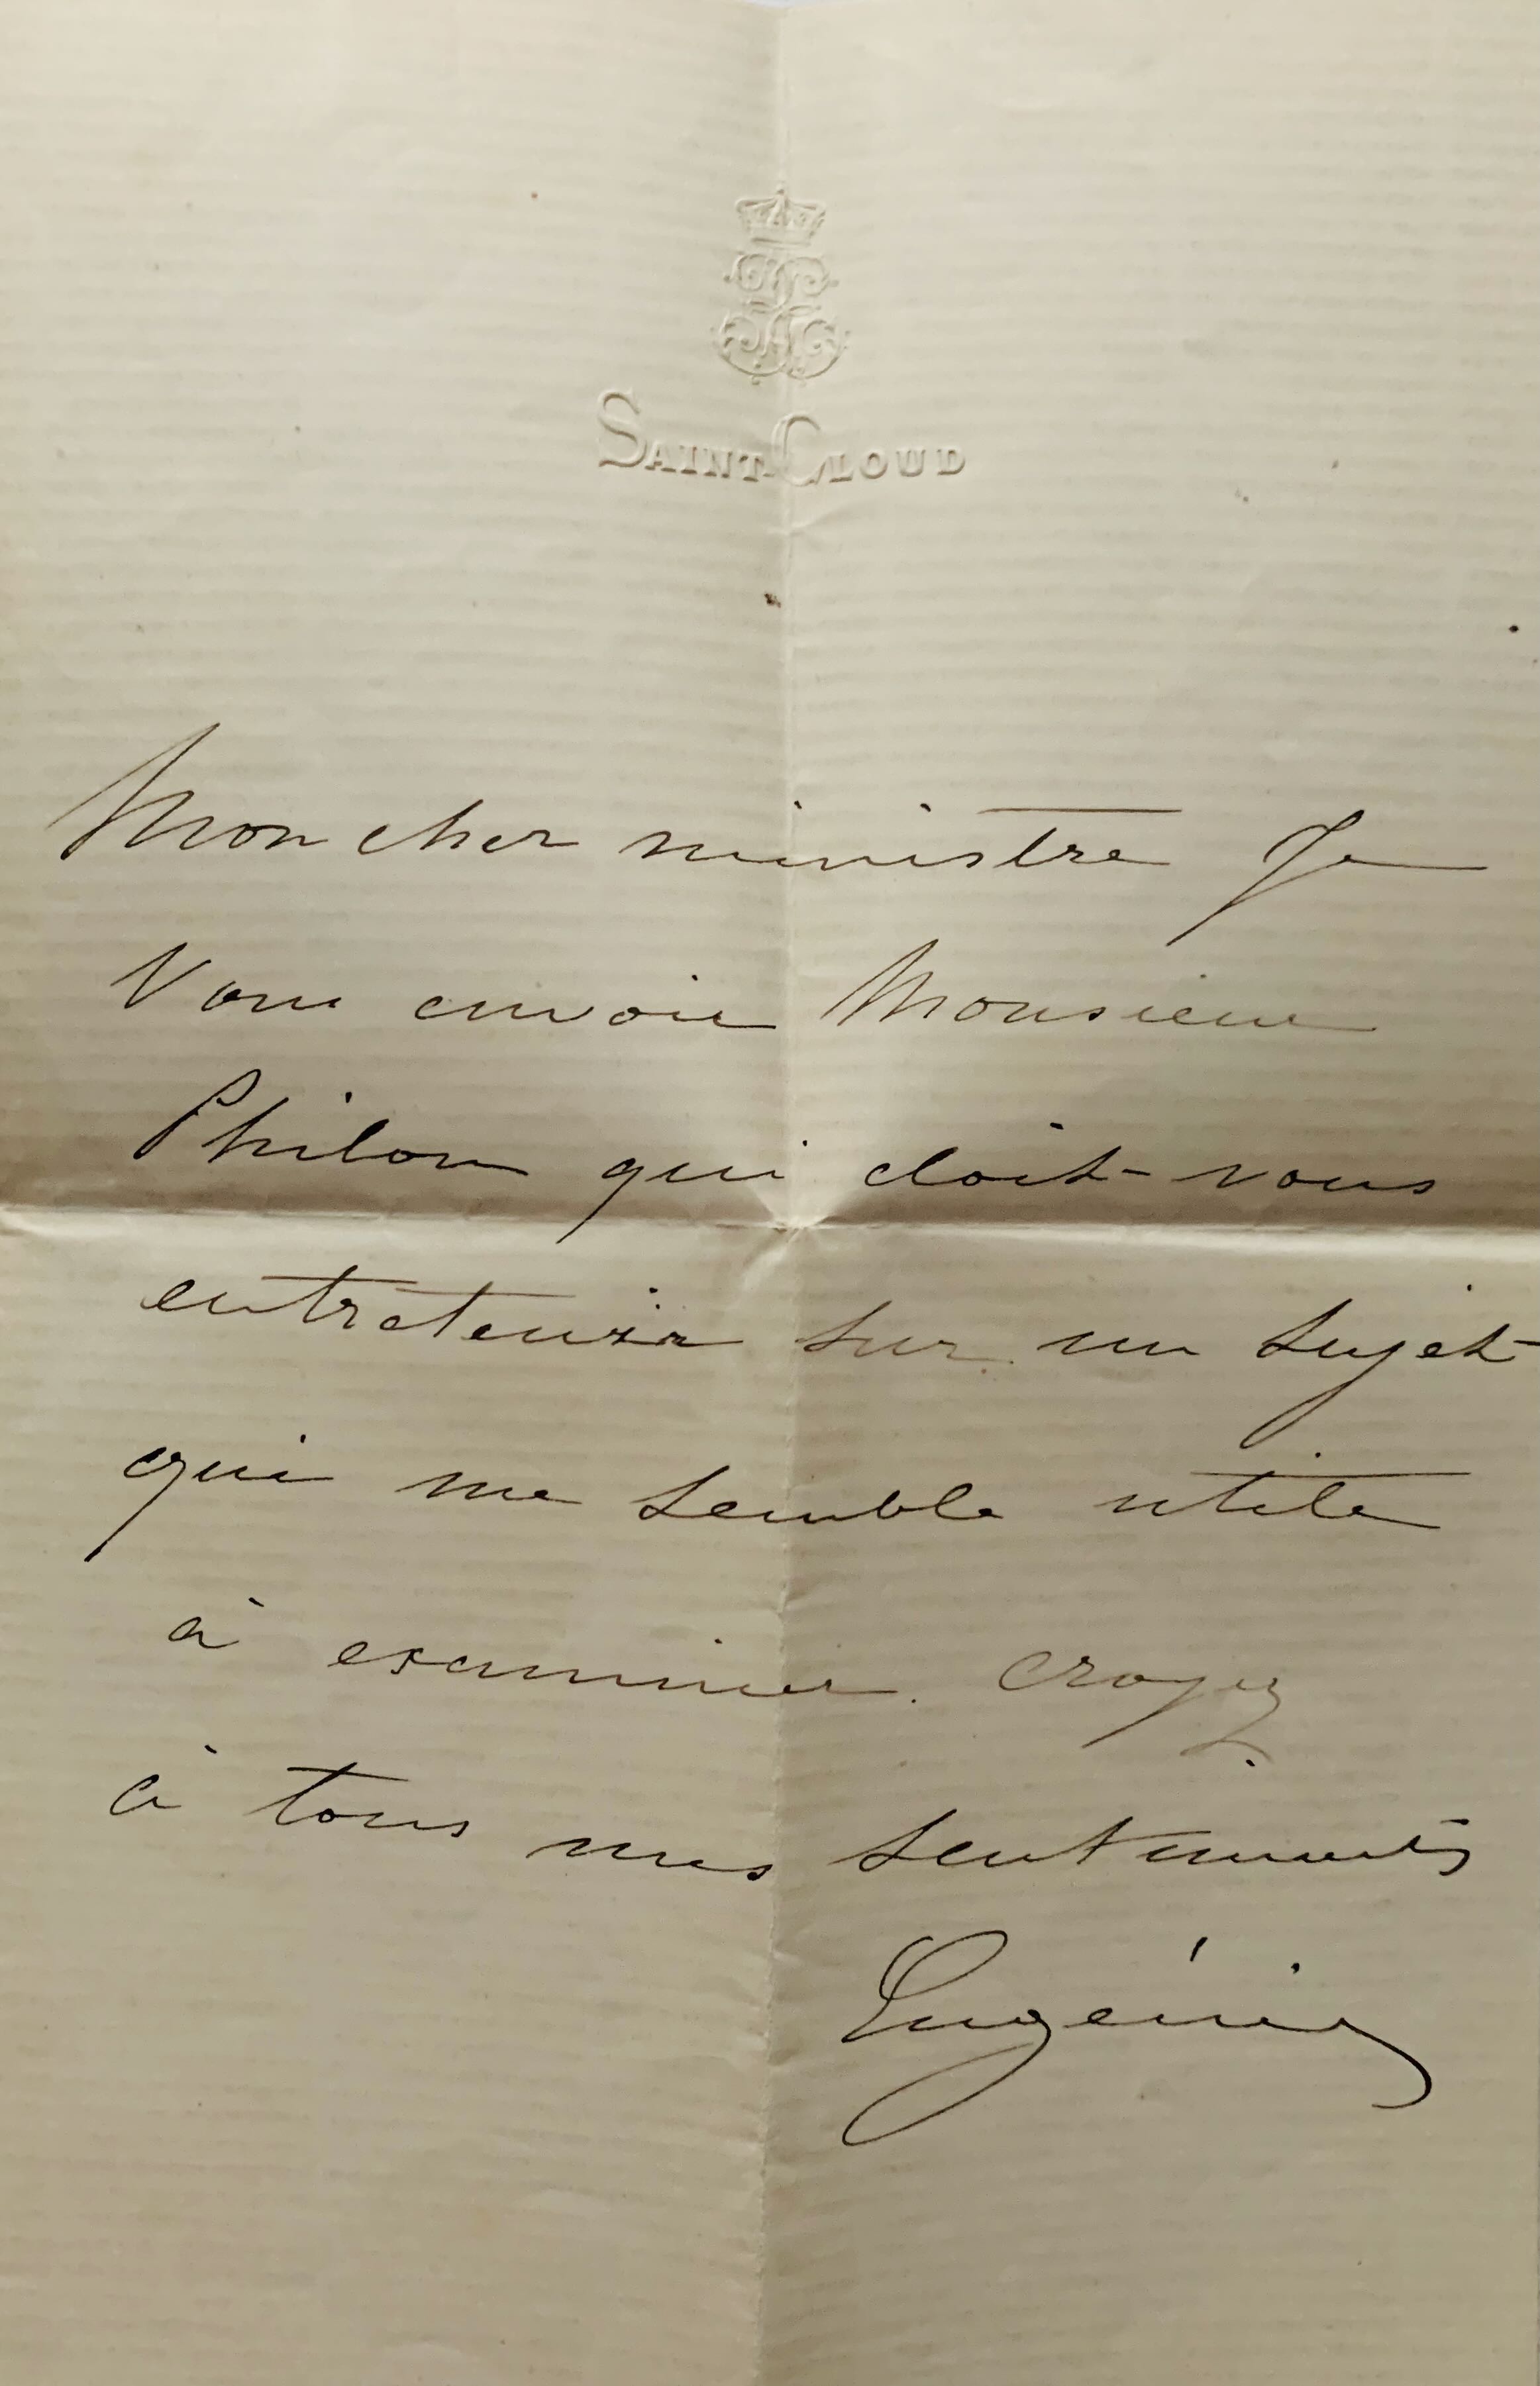 SAINT-CLOUD
Mon cher ministre Je
Vous envoie Monsieur
Philon qui doit vous
entretenir sur un sujet
qui me semble utile
à examiner. croyez
à tous mes sentiments
Eugénie